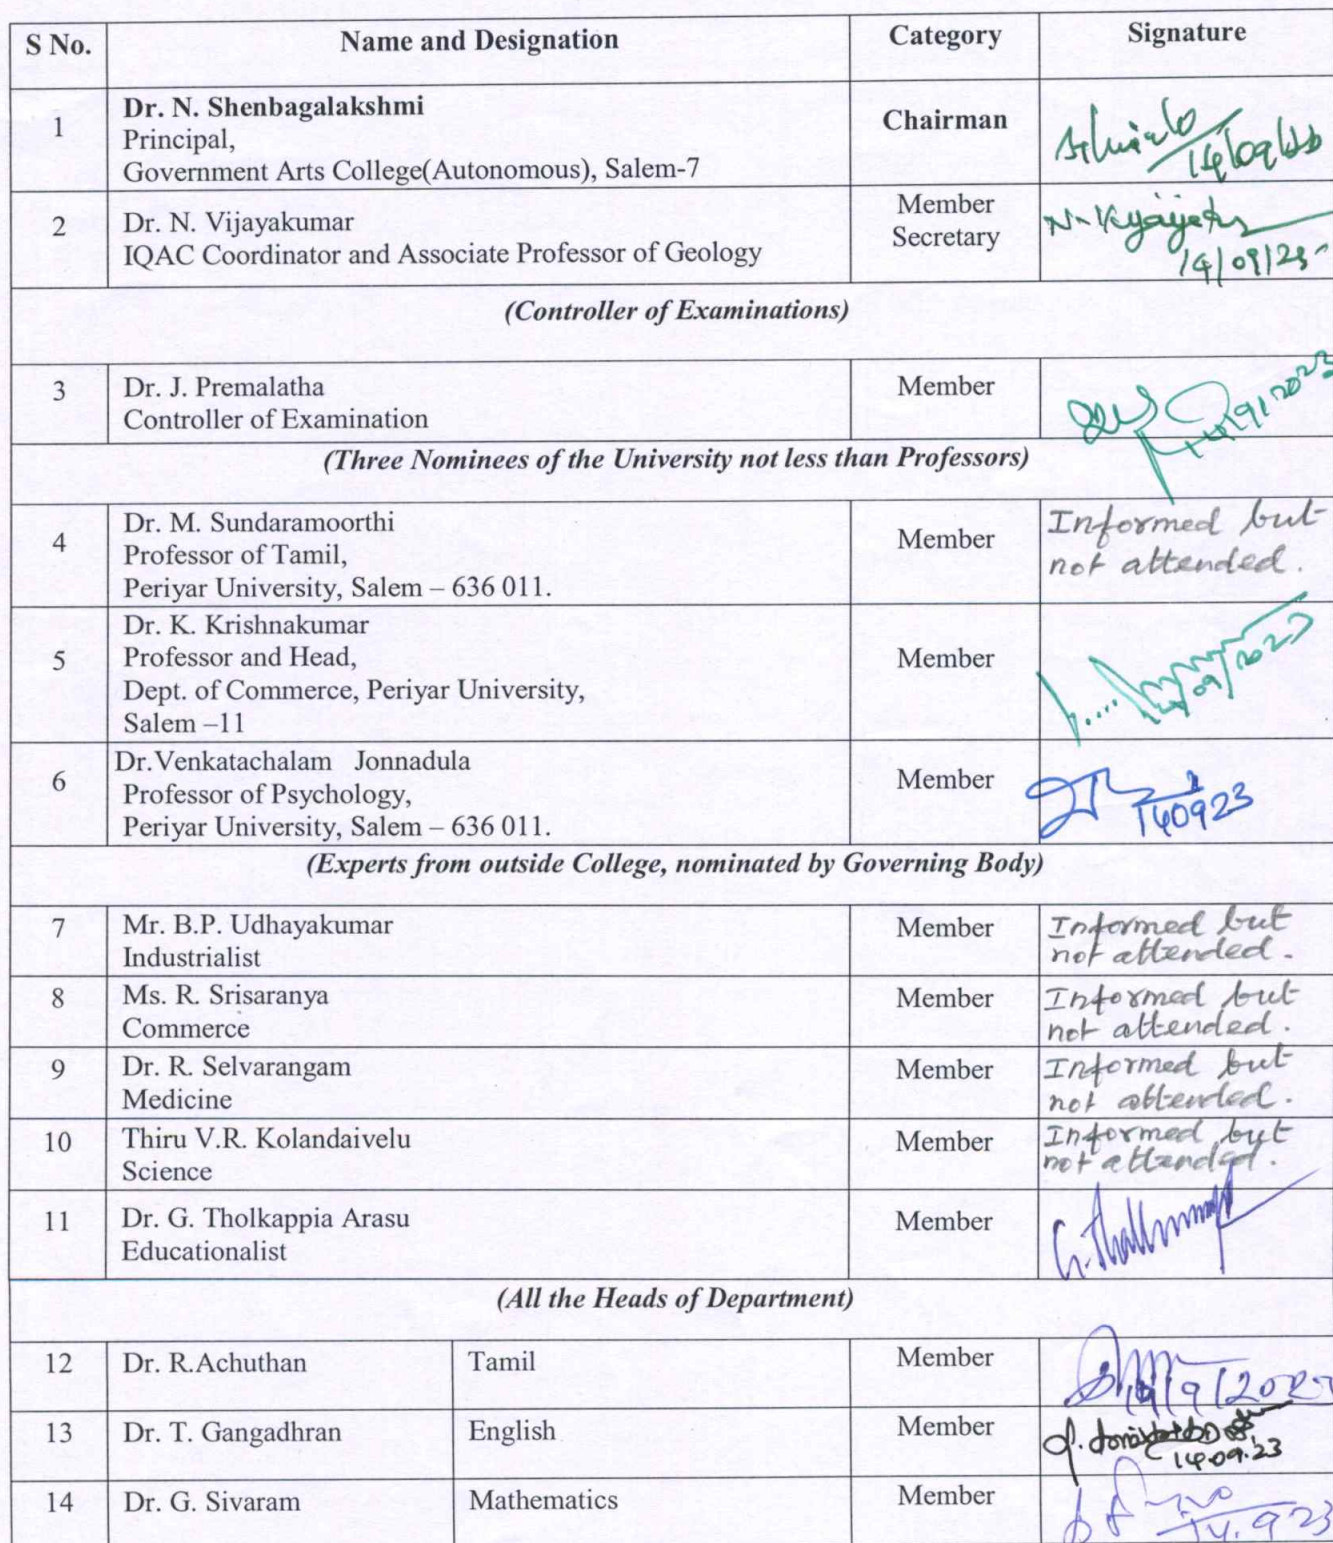 S No. Name and Designation Category Signature
1
Dr. N. Shenbagalakshmi
Principal,
Government Arts College(Autonomous), Salem-7
Chairman
14/09/23
2
Dr. N. Vijayakumar
IQAC Coordinator and Associate Professor of Geology
Member
Secretary
14/09/23
(Controller of Examinations)
3
Dr. J. Premalatha
Controller of Examination
Member
14/9/2023
(Three Nominees of the University not less than Professors)
4
Dr. M. Sundaramoorthi
Professor of Tamil,
Periyar University, Salem – 636 011.
Member
Informed but
not attended.
5
Dr. K. Krishnakumar
Professor and Head,
Dept. of Commerce, Periyar University,
Salem –11
Member
09/2023
6
Dr.Venkatachalam Jonnadula
Professor of Psychology,
Periyar University, Salem – 636 011.
Member
140923
(Experts from outside College, nominated by Governing Body)
7
Mr. B.P. Udhayakumar
Industrialist
Member
Informed but
not attended.
8
Ms. R. Srisaranya
Commerce
Member
Informed but
not attended.
9
Dr. R. Selvarangam
Medicine
Member
Informed but
not attended.
10
Thiru V.R. Kolandaivelu
Science
Member
Informed but
not attended.
11
Dr. G. Tholkappia Arasu
Educationalist
Member
(All the Heads of Department)
12 Dr. R.Achuthan Tamil Member
14/9/2023
13 Dr. T. Gangadhran English Member
14.09.23
14 Dr. G. Sivaram Mathematics Member
14.9.23